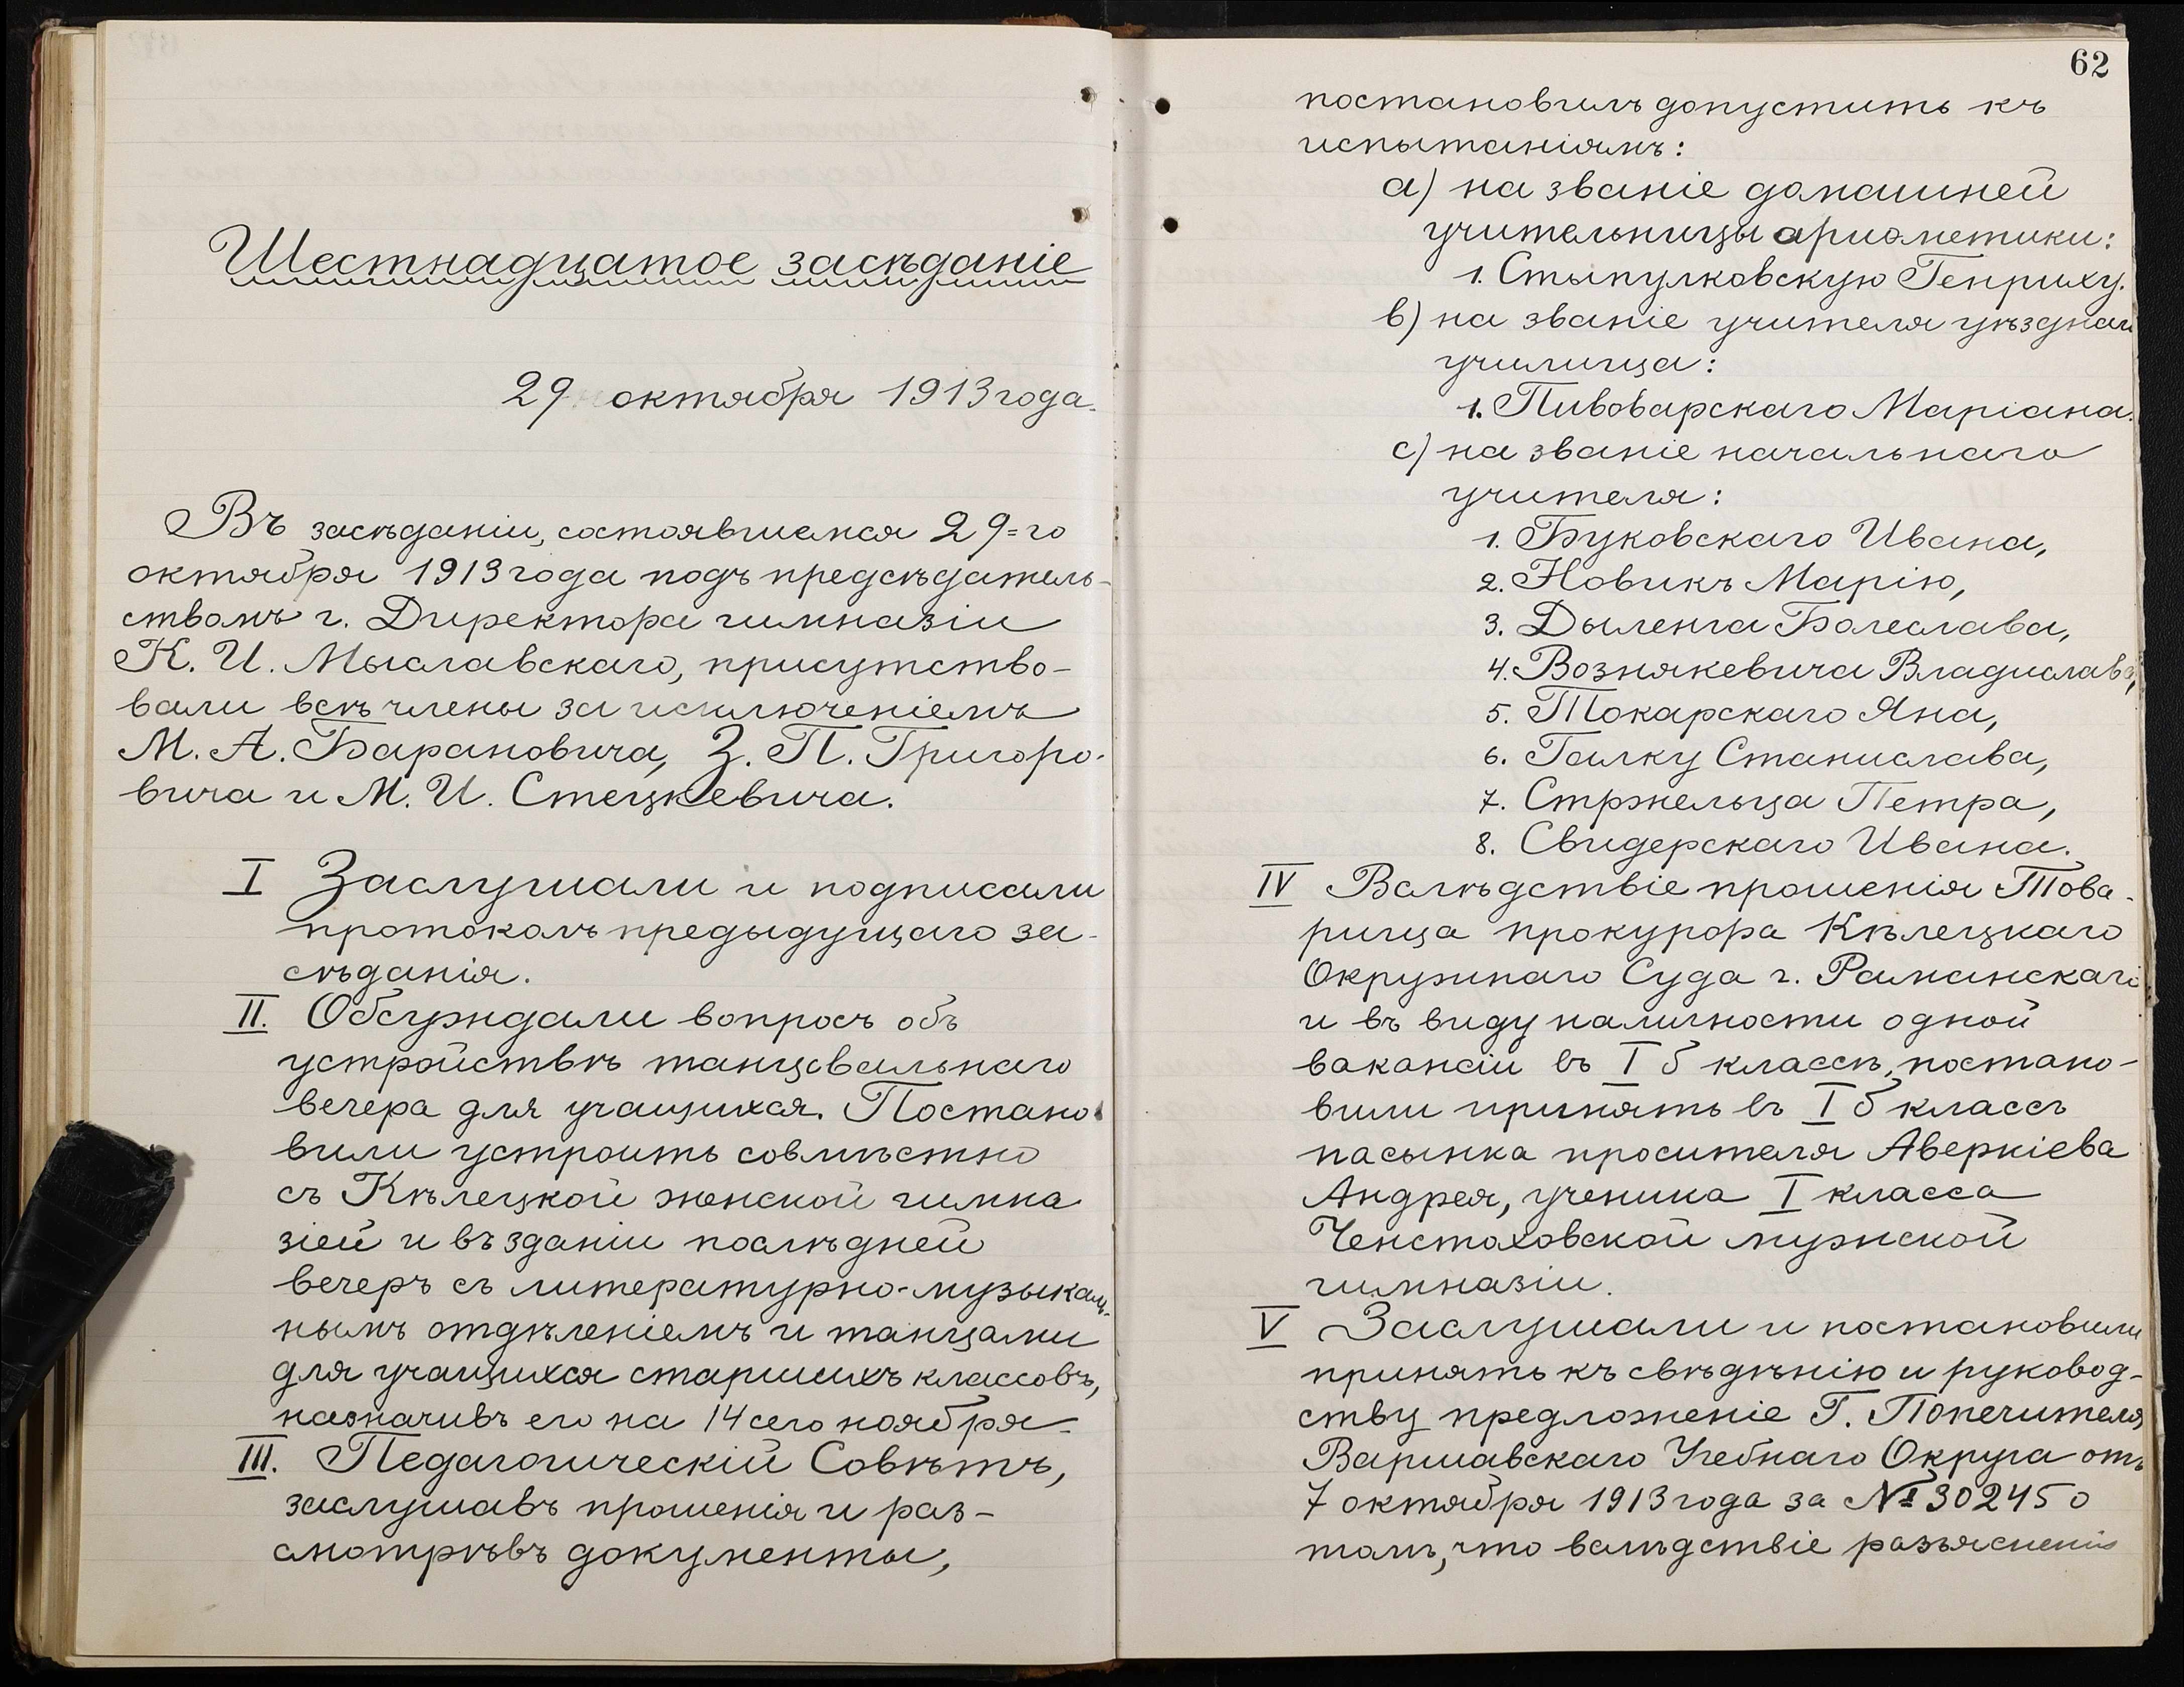 Шестнадцатое засѣданіе
29 октября 1913 года.
Въ засѣданіи, состоявшемся 29=го
октября 1913 года подъ предсѣдатель-
ствомъ г. Директора гимназіи
К. И. Мыславскаго, присутство-
вали всѣ члены за исключеніемъ
М. А. Барановича, З. П. Григоро-
вича и М. И. Стецкевича.
I Заслушали и подписали
протоколъ предыдущаго за-
сѣданія.
II. Обсуждали вопросъ объ
устройствѣ танцовальнаго
вечера для учащихся. Постано-
вили устроить совмѣстно
съ Кѣлецкой женской гимна
зіей и въ зданіи послѣдней
вечеръ съ литературно-музыкаль-
нымъ отдѣленіемъ и танцами
для учащихся старшихъ классовъ,
назначивъ его на 14 сего ноября.
III. Педагогическій Совѣтъ,
заслушавъ прошенія и раз-
смотрѣвъ документы,
62
постановилъ допустить къ
испытаніямъ:
а) на званіе домашней
учительницы ариѳметики:
1. Стыпулковскую Генриху.
в) на званіе учителя уѣзднаго
училища:
1. Пивоварскаго Маріана.
с) на званіе начальнаго
учителя:
1. Буковскаго Ивана,
2. Новикъ Марію,
3. Дыленга Болеслава,
4. Вознякевича Владислава,
5. Токарскаго Яна,
6. Галку Станислава,
7. Стржельца Петра,
8. Свидерскаго Ивана.
IV Вслѣдствіе прошенія Това-
рища прокурора Кѣлецкаго
Окружнаго Суда г. Раманскаго
и въ виду наличности одной
вакансіи въ I б классѣ, постано-
вили принять въ I б классъ
пасынка просителя Аверкіева
Андрея, ученика I класса
Ченстоховской мужской
гимназіи.
V Заслушали и постановили
принять къ свѣдѣнію и руковод-
ству предложеніе Г. Попечителя
Варшавскаго Учебнаго Округа отъ
7 октября 1913 года за № 30245 о
томъ, что вслѣдствіе разъясненія